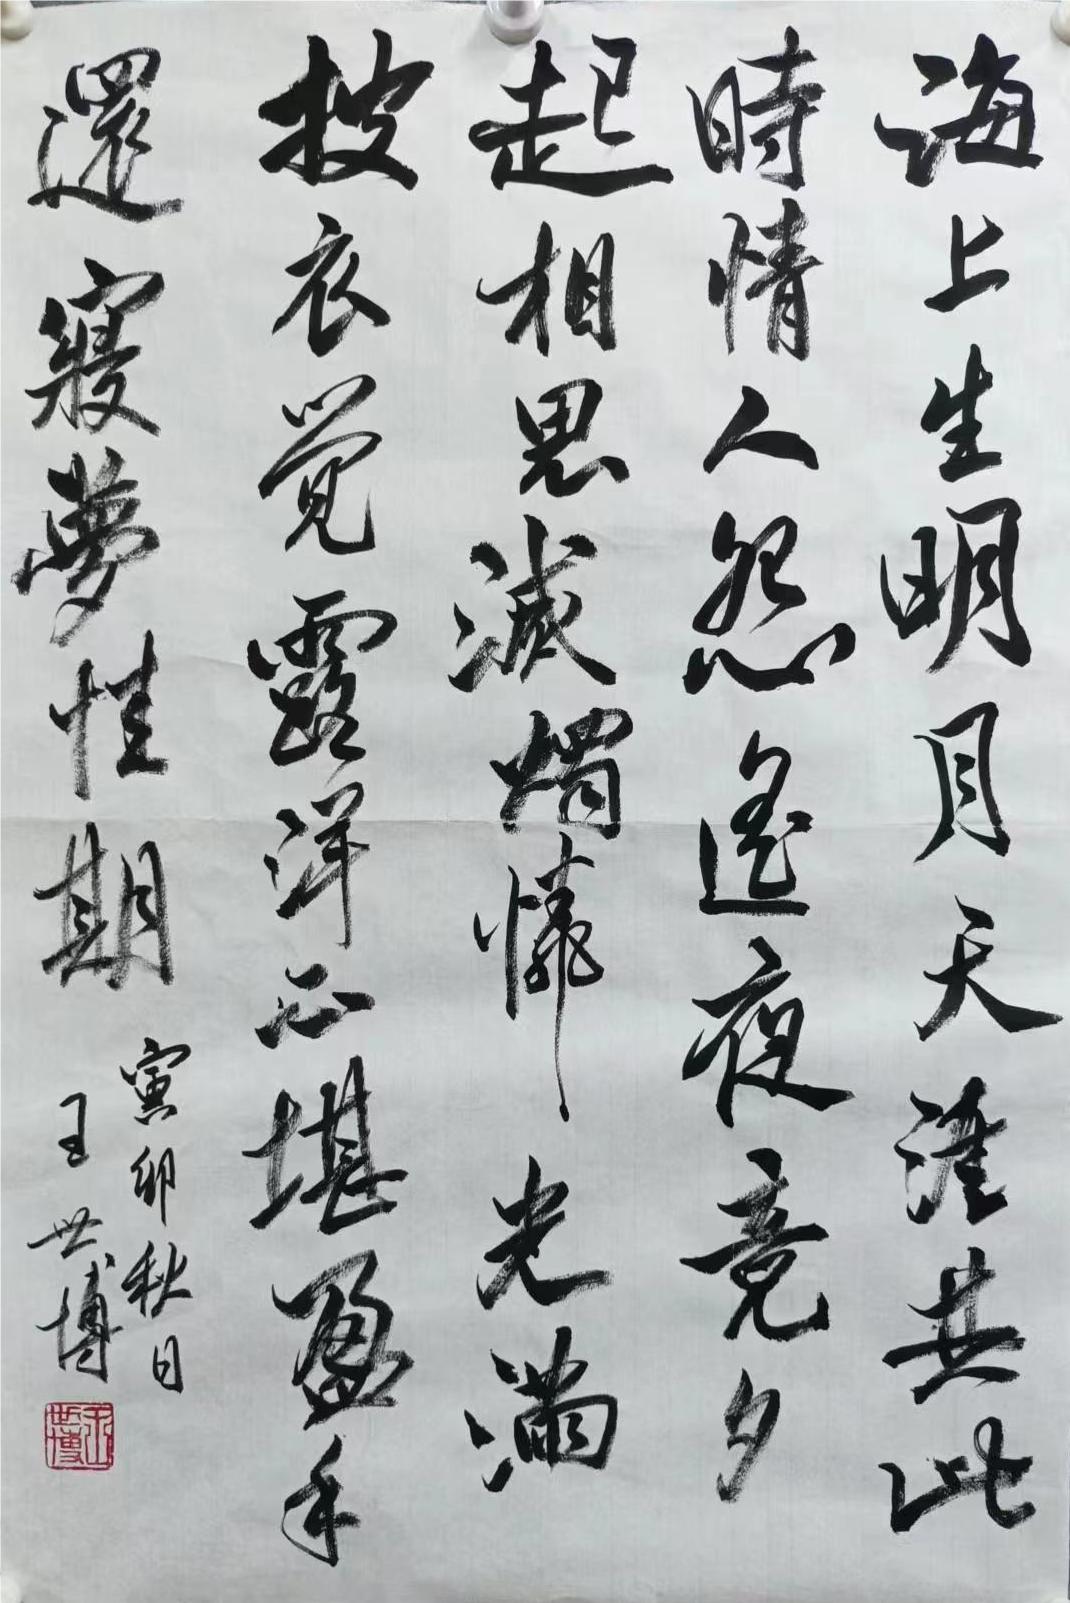 海上生明月天涯共此
時情人怨遙夜竟夕
起相思滅燭憐光滿
披衣觉露洋不堪盈手
還寢夢佳期
寅卯秋日
王世博
王世博